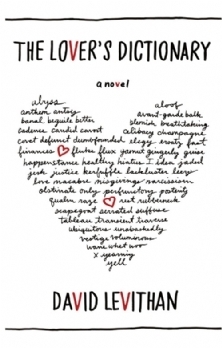 THE LOVER'S DICTIONARY
a novel
abyss aloof
anthem antsy avant-garde balk
banal beguile better blemish breathtaking
cadence candid cavort celibacy champagne
covet defunct dumbfounded elegy ersatz fast
finances flux fester gamut gingerly guise
happenstance healthy hiatus I idea jaded
jerk justice kerfuffle lackluster leery
love macabre misgivings narcissism
obstinate only perfunctory posterity
qualm rage rest rubberneck
scapegoat serrated suffuse
tableau transient traverse
ubiquitous unabashedly
vestige voluminous
wane what woo
x yearning
yell
DAVID LEVITHAN